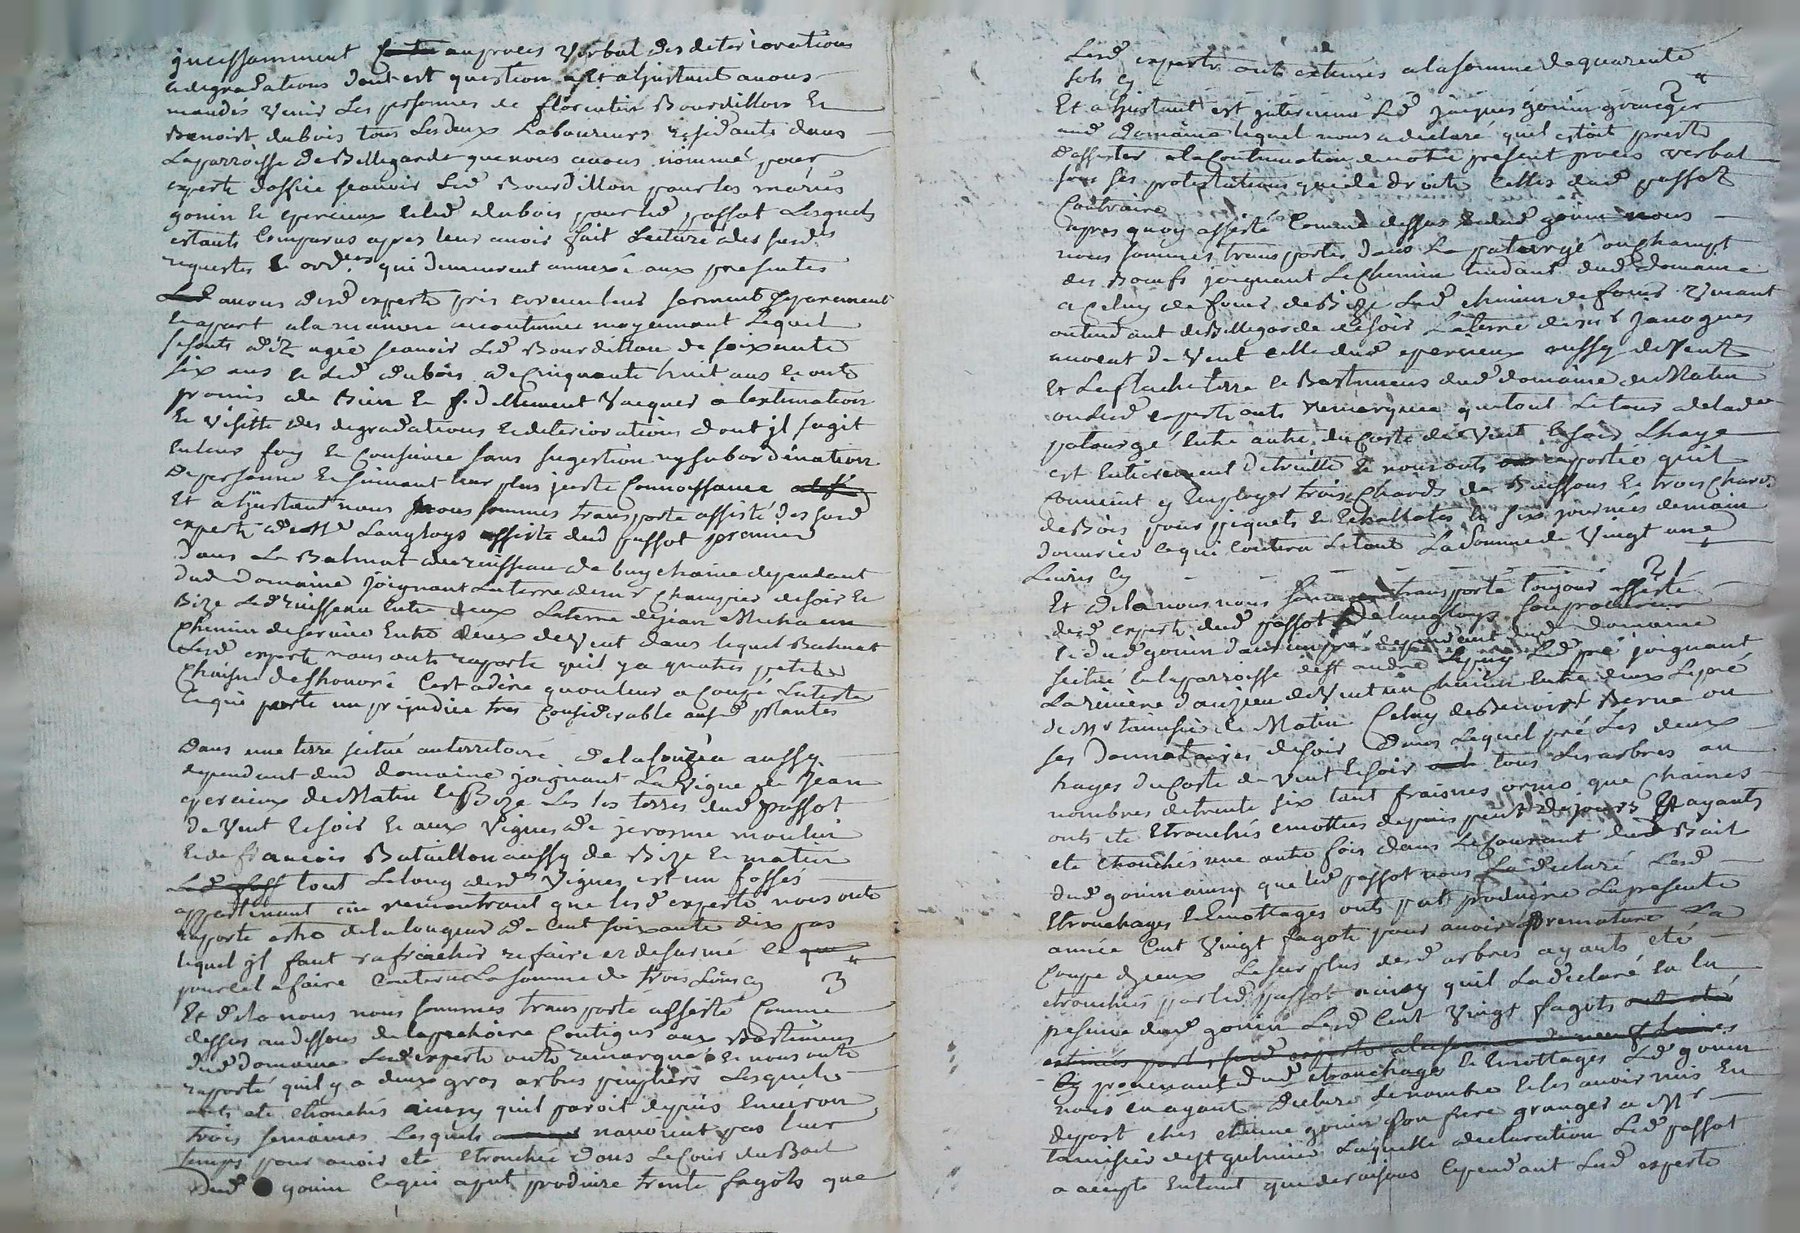 incessamment au proces verbal des deteriorations
& degradations dont est question & a linstant avons
mandés venir les personnes de florentin Bourdillon &
Benoist dubois tous les deux Laboureurs residants dans
La parroisse de Bellegarde que nous avons nommé pour
experts doffice scavoir led Bourdillon pour les mariés
gonin & epercieux & led dubois pour led passot Lesquels
estants Comparus apres leur avoir fait Lecture des susd
requestes & ordces qui demeurent annexé aux presentes
avons desd experts pris & receu leur serment separement
& apart a la maniere accoutumée moyennant Lequel
se sonts dit agée scavoir Led Bourdillon de soixante
six ans & led dubois de Cinquante huit ans & onts
promis de Bien & fidellement vacquer a lextimation
& visitte des degradations & deteriorations dont il sagit
en leurs foy & Consience sans sugestion ny subordination
de personne & suivant leur plus juste Connoissance
Et a linstant nous nous sommes transporté assisté des susd
experts de Me Langloys assisté dud passot premier
dans Le Balmat du ruisseau de buychaine dependant
dud domaine joignant La terre de mr Champier de soir &
Bize Led ruisseau entre deux La terre de jean Michaun
Chemin de service Entre deux de vent dans lequel Balmat
Lesd experts nous onts raporté quil y a quattre petits
Chaisne deshonoré Cest a dire quon leur a Coupé La teste
Ce qui porte un prejudice tres Considerable ausd plantes
Dans une terre scitué au territoire de la aussy
dependant dud domaine joignant La vigne de jean
epercieux de Matin & Bize Les terres dud passot
de vent & soir & aux vignes de jerosme moulin
& de francois Bataillon aussy de Bize & matin
tout Le long desd vignes est un fossés
appartenant que lesd experts nous onts
raporté estre de la longueur de Cent soixante dix pas
lequel il faut rafraichir refaire & Ce
pour Cela faire Couterat La somme de trois Livres Cy 3"
Et de la nous nous sommes transporté assisté Comme
dessus au dessous de la Contigus aux Bastiments
dud domaine Lesd experts onts remarqué & nous onts
raporté quil y a deux gros arbres Lesquels
onts eté etronchés ainsy quil paroit depuis Environ
trois semaines Lesquels navoient pas leur
temps pour avoir eté etronché dans Le Cour du Bail
dud gonin Ce qui a put produire trente fagots que
Lesd experts onts extimés a la somme de quarente
sols Cy 2"
Et a linstant est intervenu Led jacques gonin granger
aud domaine lequel nous a declaré quil estoit prest
dassister a la Continuation de notre present proces verbal
sous ses protestations que de droit Celles dud passot
Contraire
Apres quoy assisté Comme dessus & dud gonin nous
nous sommes transportés dans Le paturgé ou champt
des Boeufs joignant Le Chemin tendant dud domaine
a Celuy de fours de Bize Led chemin de fours venant
ou tendant de Bellegarde de soir La terre de mr Janognes
auvent de vent Celle dud epercieux aussy de vent
Et Le Clache terre & Bastiments dud domaine de Matin
ou Lesd experts onts remarquée que tout Le tour de lad
paturgé Entre autre du Costé de vent & soir Lhaye
est Entierement detruitte & nous onts raporté quil
Convient y Employer trois Chards de Buissons & trois Chards
de Bois pour piquets & & six journées de main
douvrier Ce qui Coutera Le tout La somme de vingt une
Livres Cy 21
Et de la nous nous transporté toujour assisté
desd experts dud passot de Langloys son procureur
& dud gonin dans un pré dependant dud domaine
scitué en La parroisse dest andré Led pré joignant
La riviere danzieu de vent un Chemin Entre deux Le pré
de Mr tamisier de Matin Celuy de Benoist Berne ou
ses donnataires de soir dans Lequel pré Les deux
hayes du Costé de vent & soir tous Les arbres au
nombres de trente six tant fraisnes ormes que Chaines
onts eté Etronchés & mottés depuis peut de jours & ayants
eté etronchés une autre fois dans Le Courant dud Bail
dud gonin ainsy que led passot nous La declaré Lesd
Etronchages & Emottages onts put produire La presente
année Cent vingt fagots pour avoir prematuré La
Coupe dyceux Le surplus desd arbres ayants eté
etronchés par led passot ainsy quil La declaré En La
presence dud gonin Lesd Cent vingt fagots
estimés par les susd experts a la somme de neuf livres
Cy provenant dud etronchage & Emottages Led gonin
nous en ayant declaré Le nombre & les avoir mis En
depost ches etienne gonin son frere granger a Mr
tamisier dest Laquelle declaration Led passot
a accepté En tant que de raisons Cependant Lesd experts